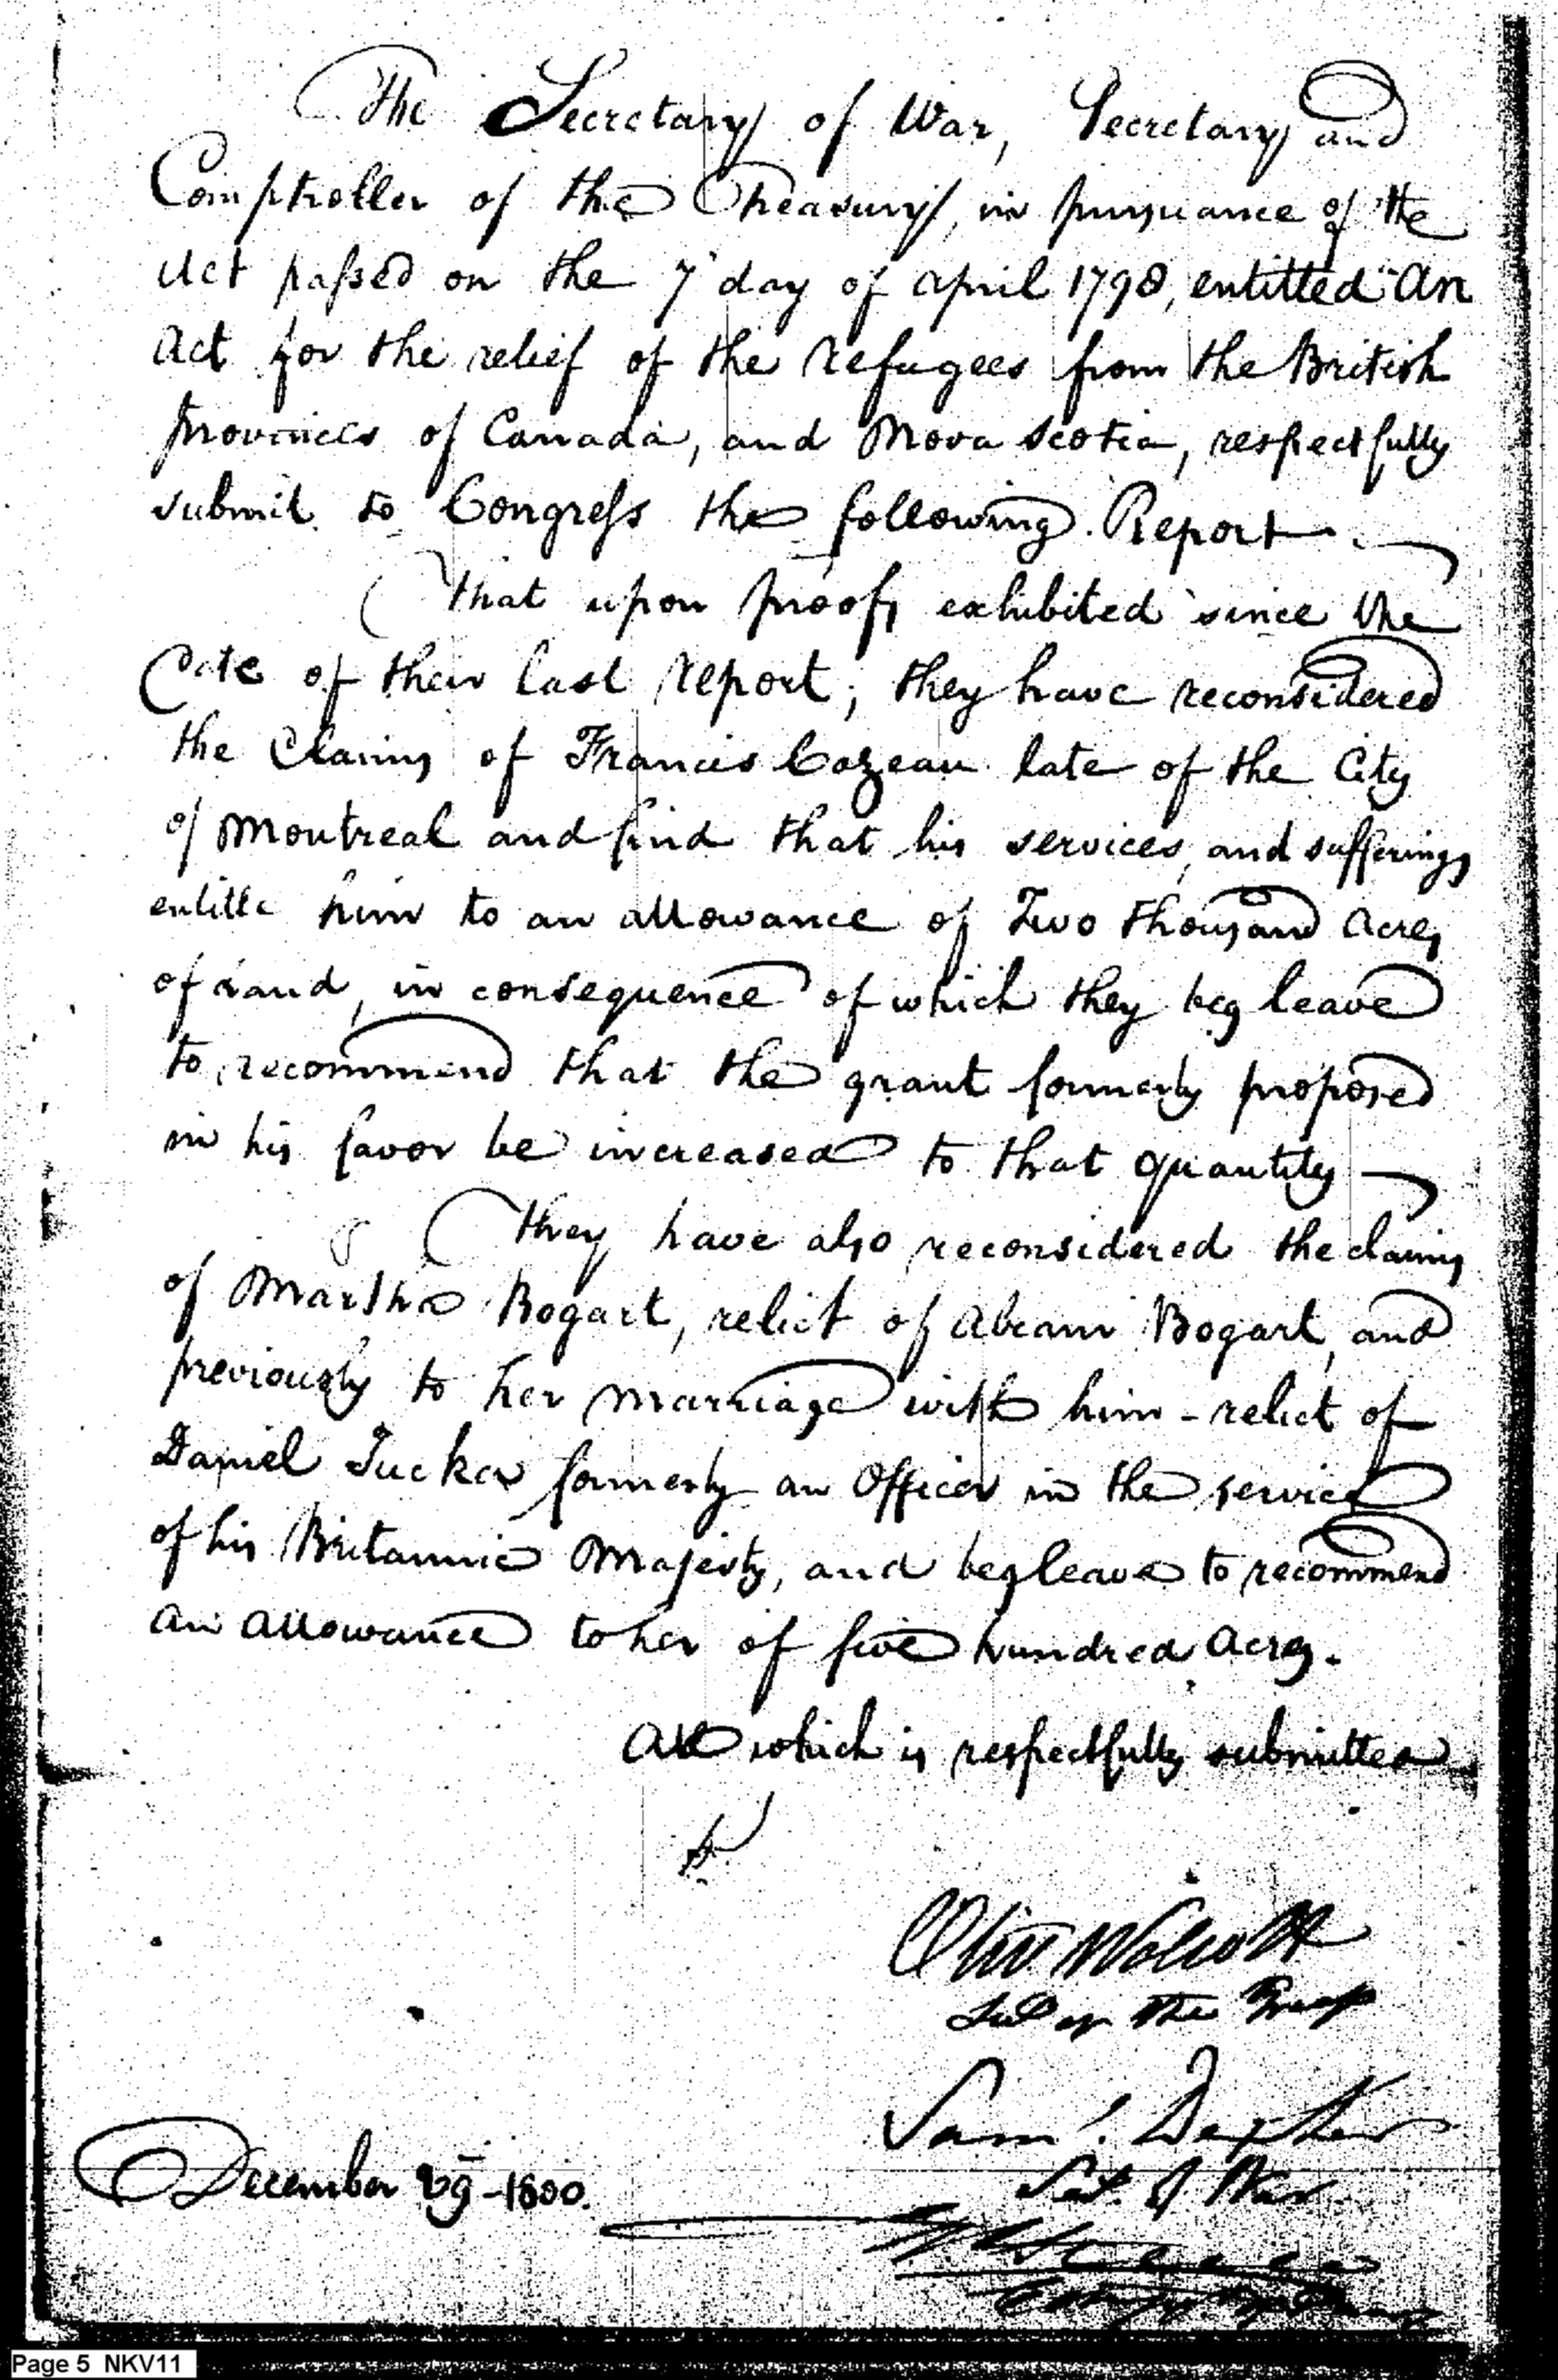 The Secretary of War, Secretary and
Comptroller of the Treasury, in pursuance of the
Act passed on the 7 day of April 1798, entitled "An
Act for the relief of the refugees from the British
provinces of Canada, and Nova Scotia, respectfully
submit to Congress the following Report.
That upon proofs exhibited since the
Date of their last report; they have reconsidered
the Claims of Francis Cazeau late of the City
of Montreal and find that his services, and sufferings
entitle him to an allowance of Two thousand Acres
of Land, in consequence of which they beg leave
to recommend that the grant formerly proposed
in his favor be increased to that quantity
They have also reconsidered the claims
of Martha Bogart, relict of Abram Bogart, and
previously to her marriage with him - relict of
Daniel Tucker formerly an Officer in the service
of his Britannic Majesty, and beg leave to recommend
an allowance to her of five hundred Acres.
All which is respectfully submitted
Oliv Wolcott
Sec of the Treas
Saml. Dexter
Sec. of War
December 29 - 1800.
Page 5 NKV11